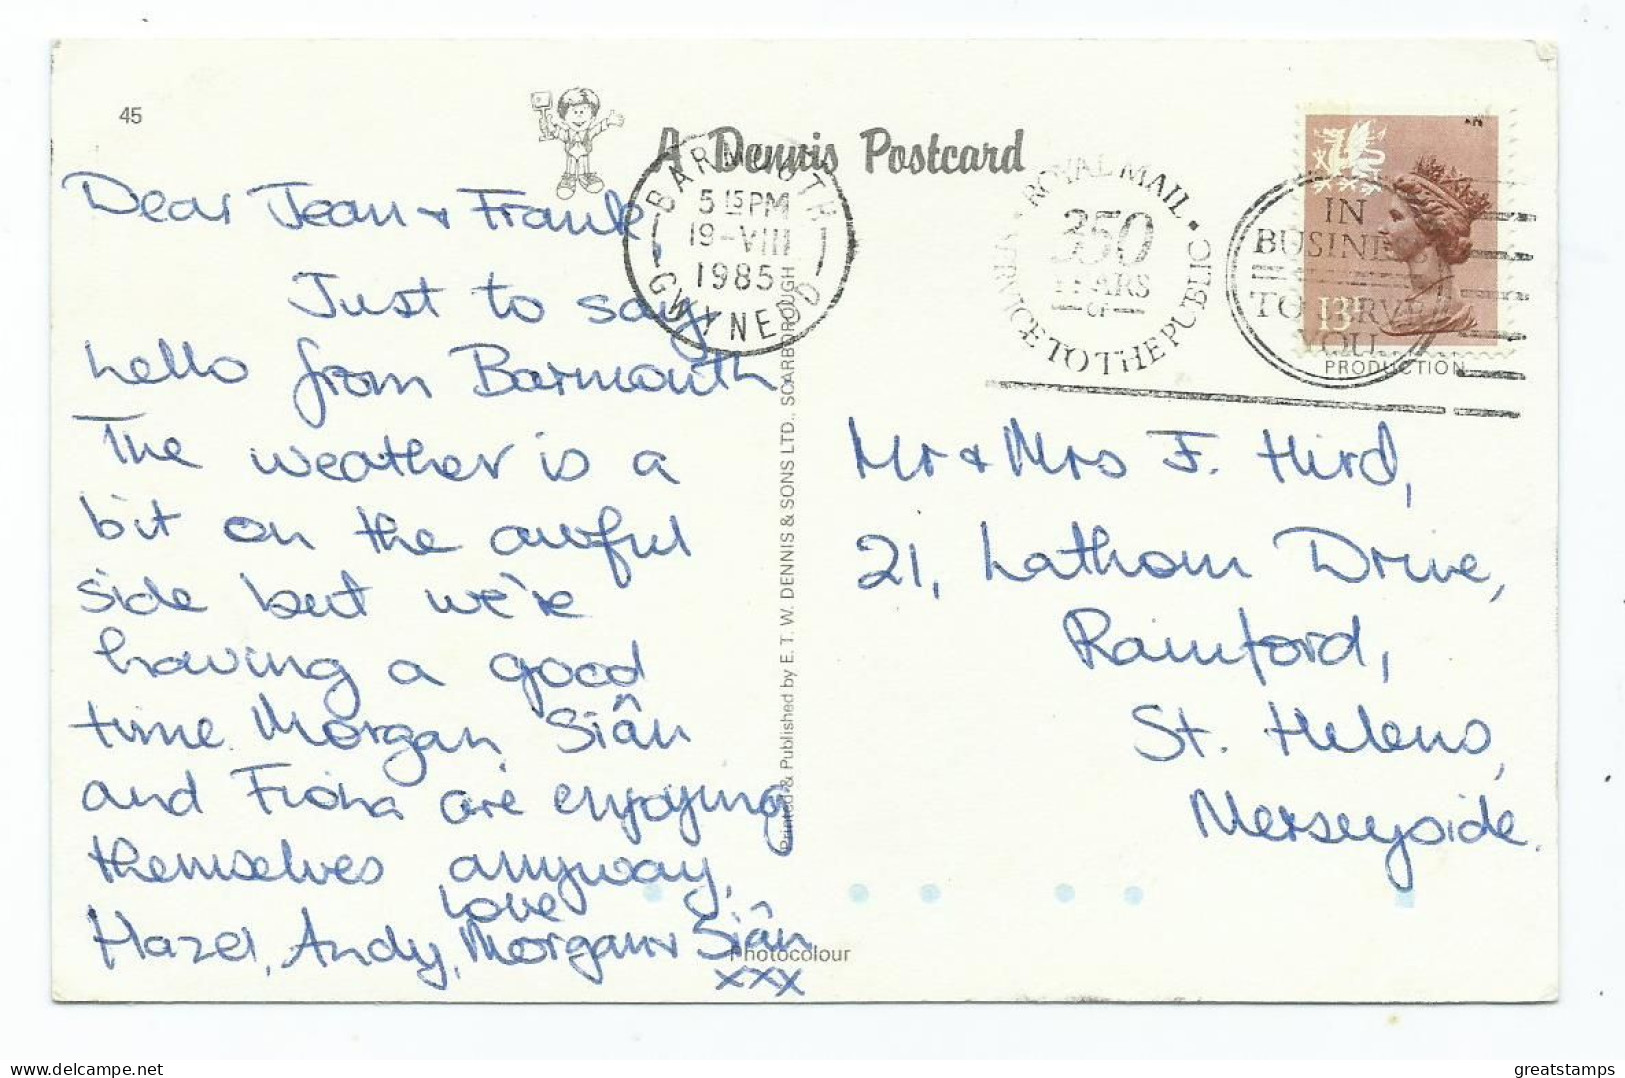 45
A Dennis Postcard
BARMOUTH
5 15 PM
19-VIII
1985
GWYNEDD
ROYAL MAIL
350
YEARS
OF
SERVICE TO THE PUBLIC
IN
BUSINESS
TO SERVE
YOU
13P
PRODUCTION
Dear Jean & Frank,
Just to say
hello from Barmouth
The weather is a
bit on the awful
side but we're
having a good
time. Morgan, Siân
and Fiona are enjoying
themselves anyway,
Love
Hazel, Andy, Morgan & Siân
xxx
Printed & Published by E. T. W. DENNIS & SONS LTD., SCARBOROUGH
Mr & Mrs F. Hird,
21, Lathom Drive,
Rainford,
St. Helens,
Merseyside.
Photocolour
greatstamps